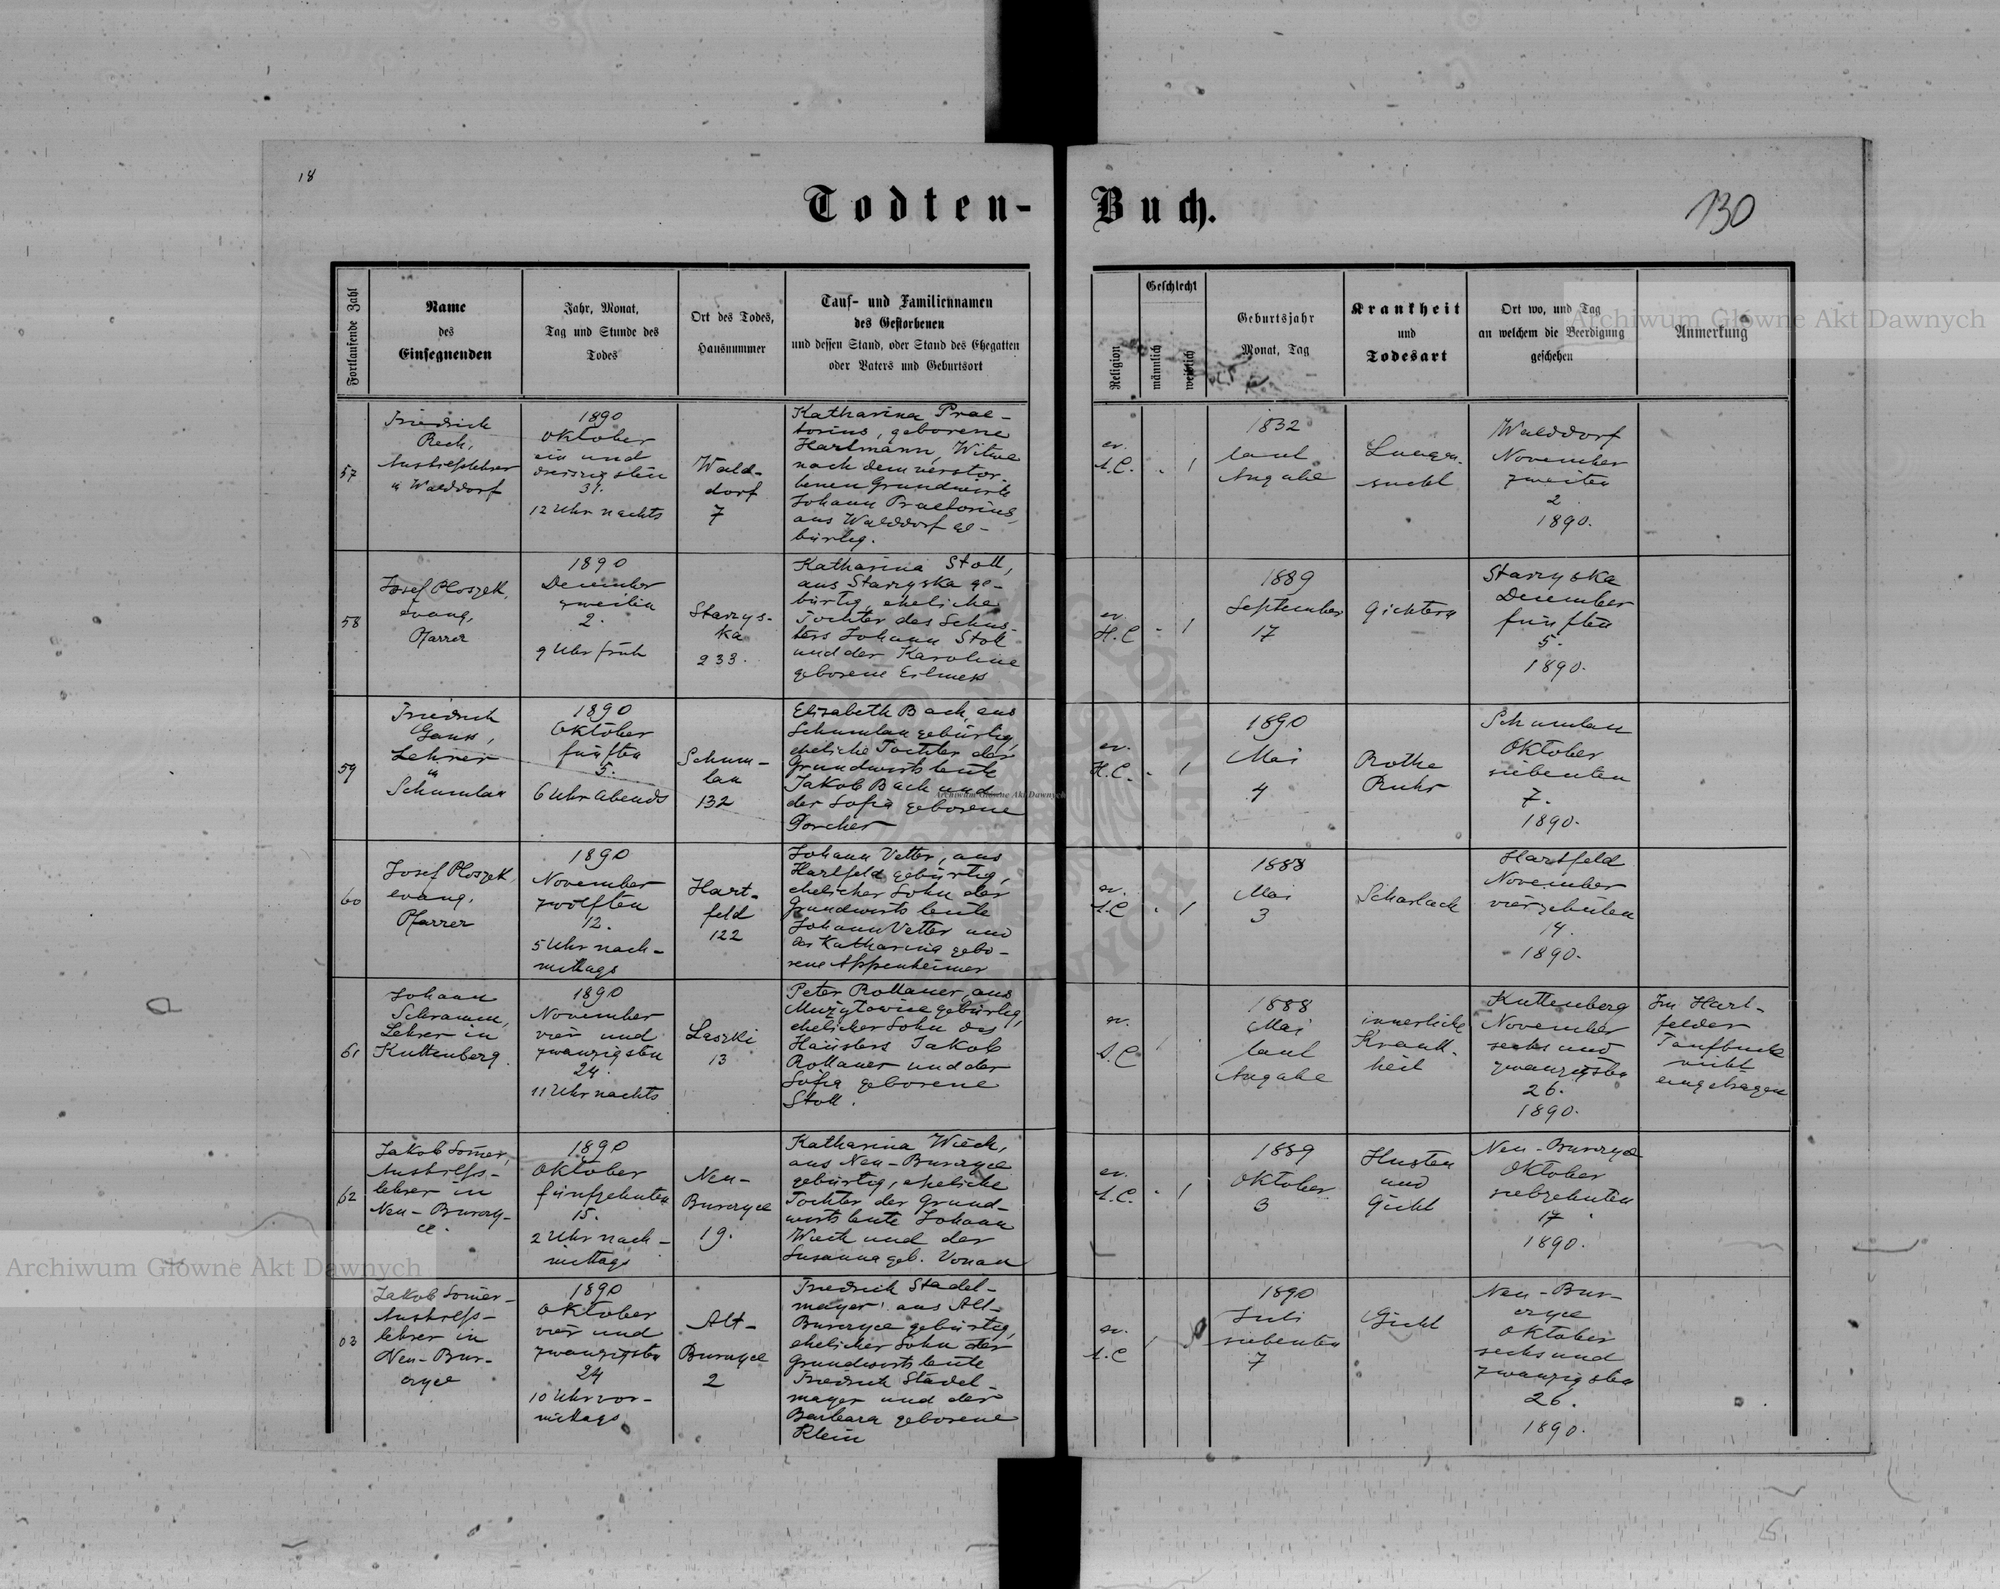 18
Todten-
Buch.
130
Fortlaufende Zahl
Name
des
Einsegnenden
Jahr, Monat,
Tag und Stunde des
Todes
Ort des Todes,
Hausnummer
Tauf- und Familiennamen
des Gestorbenen
und dessen Stand, oder Stand des Ehegatten
oder Vaters und Geburtsort
Religion
Geschlecht
männlich
weiblich
Geburtsjahr
Monat, Tag
Krankheit
und
Todesart
Ort wo, und Tag
an welchem die Beerdigung
geschehen
Anmerkung
57
Friedrich
Rech,
Aushilfslehrer
in Walddorf
1890
Oktober
ein und
dreissigsten
31.
12 Uhr nachts
Wald-
dorf
7
Katharina Prae-
torius, geborene
Hartmann, Witwe
nach dem verstor-
benen Grundwirte
Johann Praetorius,
aus Walddorf ge-
bürtig.
ev.
A.C.
-
1
1832
laut
Angabe
Lungen-
sucht
Walddorf
November
zweiten
2
1890.
58
Josef Ploszek,
evang.
Pfarrer
1890
December
zweiten
2.
9 Uhr früh
Starzys-
ka
233.
Katharina Stoll,
aus Starzyska ge-
bürtig, eheliche
Tochter des Schus-
ters Johann Stoll
und der Karoline
geborene
ev.
H.C
-
1
1889
September
17
Gichtern
Starzyska
December
fünften
5.
1890.
59
Friedrich
Lehrer
in
Schumlau
1890
Oktober
fünften
5.
6 Uhr Abends
Schum-
lau
132
Elisabeth Bach, aus
Schumlau gebürtig,
eheliche Tochter der
Grundwirtsleute
Jakob Bach und
der Sofia geborene
Porcher
ev.
H.C.
-
1
1890
Mai
4
Rothe
Ruhr
Schumlau
Oktober
siebenten
7.
1890.
60
Josef Ploszek,
evang.
Pfarrer
1890
November
zwölften
12.
5 Uhr nach-
mittags
Hart-
feld
122
Johann Vetter, aus
Hartfeld gebürtig,
ehelicher Sohn der
Grundwirtsleute
Johann Vetter und
der Katharina gebo-
rene Appenheimer
ev.
A.C
-
1
1888
Mai
3
Scharlach
Hartfeld
November
vierzehnten
14.
1890.
61
Johann
Schramm,
Lehrer in
Kuttenberg.
1890
November
vier und
zwanzigsten
24.
11 Uhr nachts
Laszki
13
Peter Rottauer, aus
Mużyłowice gebürtig,
ehelicher Sohn des
Häuslers Jakob
Rottauer und der
Sofia geborene
Stoll.
ev.
A.C
1
1888
Mai
laut
Angabe
innerliche
Krank-
heit
Kuttenberg
November
sechs und
zwanzigsten
26.
1890.
Im Hart-
felder
Taufbuche
nicht
eingetragen
62
Jakob Somer,
Aushilfs-
lehrer in
Neu-Burczy-
ce.
1890
Oktober
fünfzehnten
15.
2 Uhr nach-
mittags
Neu-
Burczyce
19.
Katharina Wiech,
aus Neu-Burczyce
gebürtig, eheliche
Tochter der Grund-
wirtsleute Johann
Wiech und der
Susanna geb. Vonau
ev.
A.C.
-
1
1889
Oktober
3
Husten
und
Gicht
Neu-Burczyce
Oktober
siebzehnten
17.
1890.
63
Jakob Somer-
Aushilfs-
lehrer in
Neu-Bur-
czyce
1890
Oktober
vier und
zwanzigsten
24
10 Uhr vor-
mittags
Alt-
Burczyce
2
Friedrich Stadel-
mayer, aus Alt-
Burczyce gebürtig,
ehelicher Sohn der
Grundwirtsleute
Friedrich Stadel-
mayer und der
Barbara geborene
Klein
ev.
A.C
1
1890
Juli
siebenten
7
Gicht
Neu-Bur-
czyce
Oktober
sechs und
zwanzigsten
26.
1890.
Archiwum Główne Akt Dawnych
Archiwum Główne Akt Dawnych
Archiwum Główne Akt Dawnych